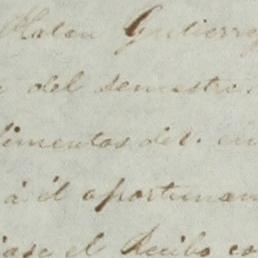 Gutierrez
del semestre
limentos del
á él oportunam
el Recibo co